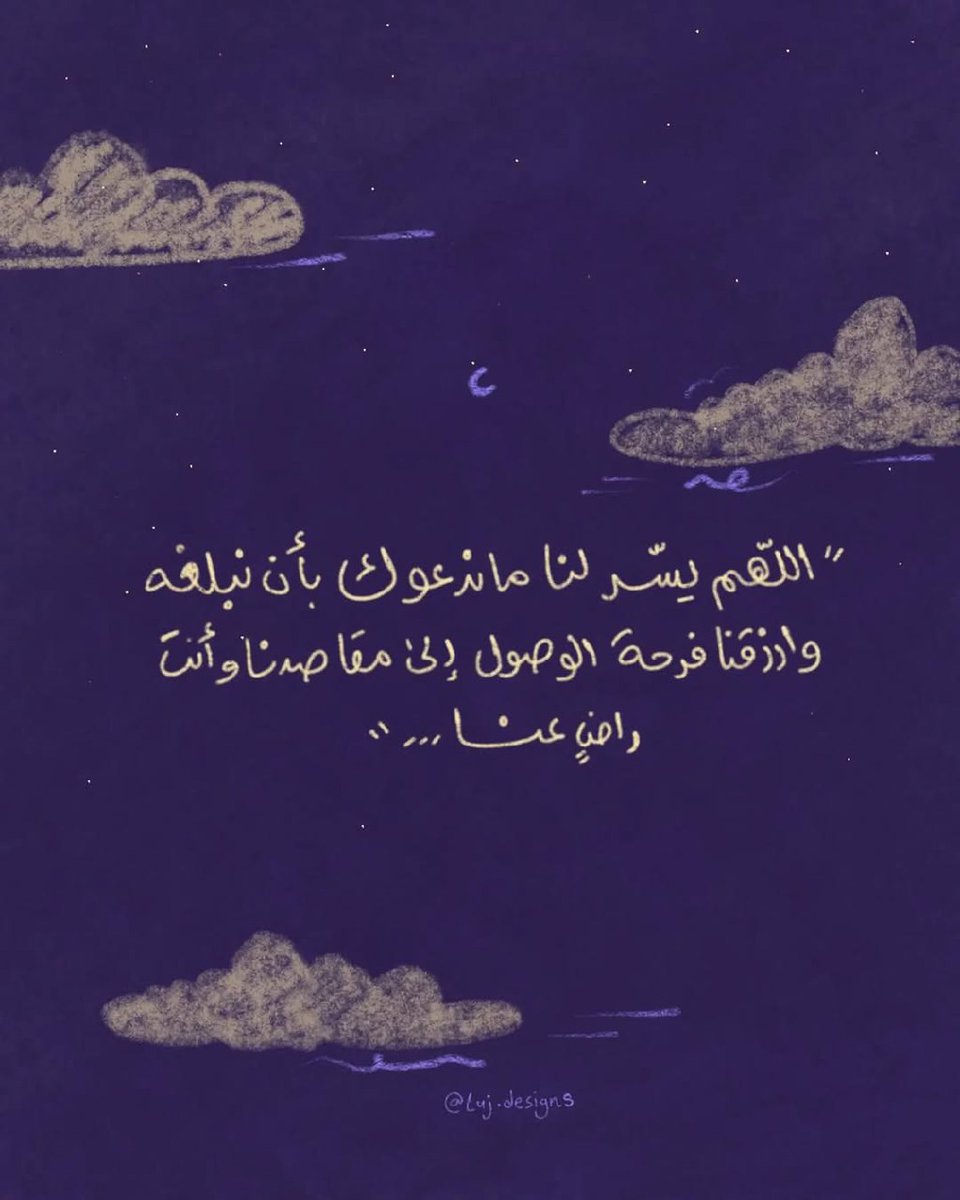 "اللّهم يسّر لنا ما ندعوك بأن نبلغه
وارزقنا فرحة الوصول إلى مقاصدنا وأنتَ
راضٍ عنا ..."
@luj.designs